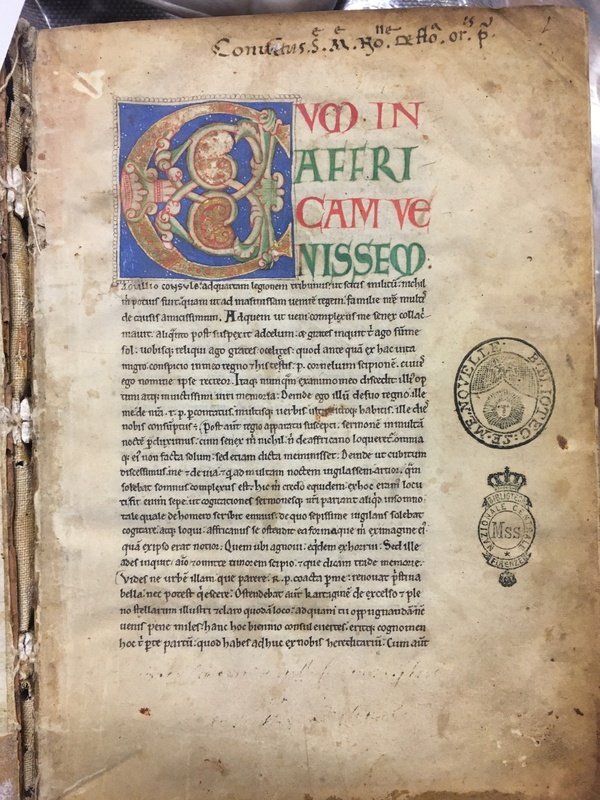 Conuētus. S. M. No.
C
VM IN
AFFRI
CAM VE
NISSEM:
consule. ad quartam legionem tribunus ut scitis militū. nichil
m potius fuit. quam ut ad masinissam uenirē regem. familie nrē
de causis amicissimum. Ad quem ut ueni complexus me senex
mauit. aliqnto post suspexit ad celum. & grates inquit t ago sūme
sol. uobisq; reliqui ago grates celites. quod ante quā ex hac uita
migro. conspicio in meo regno & his tectis. p. cornelium scipionē. cuius
ego nomine ipse recreor. Itaq; numqm ex animo meo discedit illī op
tum atq; inuictissimi uiri memoria. Deinde ego illū de suo regno. ille
me de nrā. r. p. pcontatus. multisq; uerbis ultro citroq; habitis. ille
nobis consumpt; ē. Post aūt regio apparatu suscepti. sermonē in multā
noctē pduximus. cum senex nichil n de affricano loqueret. omnia
q; ei non facta solum. sed etiam dicta meminisset. Deinde ut cubitum
discessimus. me & de uia & qd ad multam noctem uigilassem artior. qm
solebat somnus complexus est. hic m credo equidem ex hoc eram locu
ti. fit enim sepe. ut cogitationes sermonesq; nri pariant aliqd in somno
tale quale de homero scribit ennius. de quo sepissime uigilans solebat
cogitare. atq; loqui. affricanus se ostendit ea forma que m ex imagine ei
quā ex ipso erat notior. Quem ubi agnoui. eqdem exhorrui. Sed ille
ades inquit. aīo & omitte timorem scipio. & que dicam trade memorie.
Vides ne urbē illam que parere. r. p. coacta p me. renouat pstina
bella. nec potest qescere. Ostendebat aūt kartaginē de excelso & ple
no stellarum illustri & claro quodā loco. ad quam tu oppugnandā nc
uenis pene miles. hanc hoc biennio consul euertes. eritq; cognomen
hoc t p te partū. quod habes adhuc ex nobis hereditariū. Cum aūt
BIBLIOTEC. S. M. NOVELLE.
BIBLIOTECA
NAZIONALE CENTRALE
Mss
FIRENZE